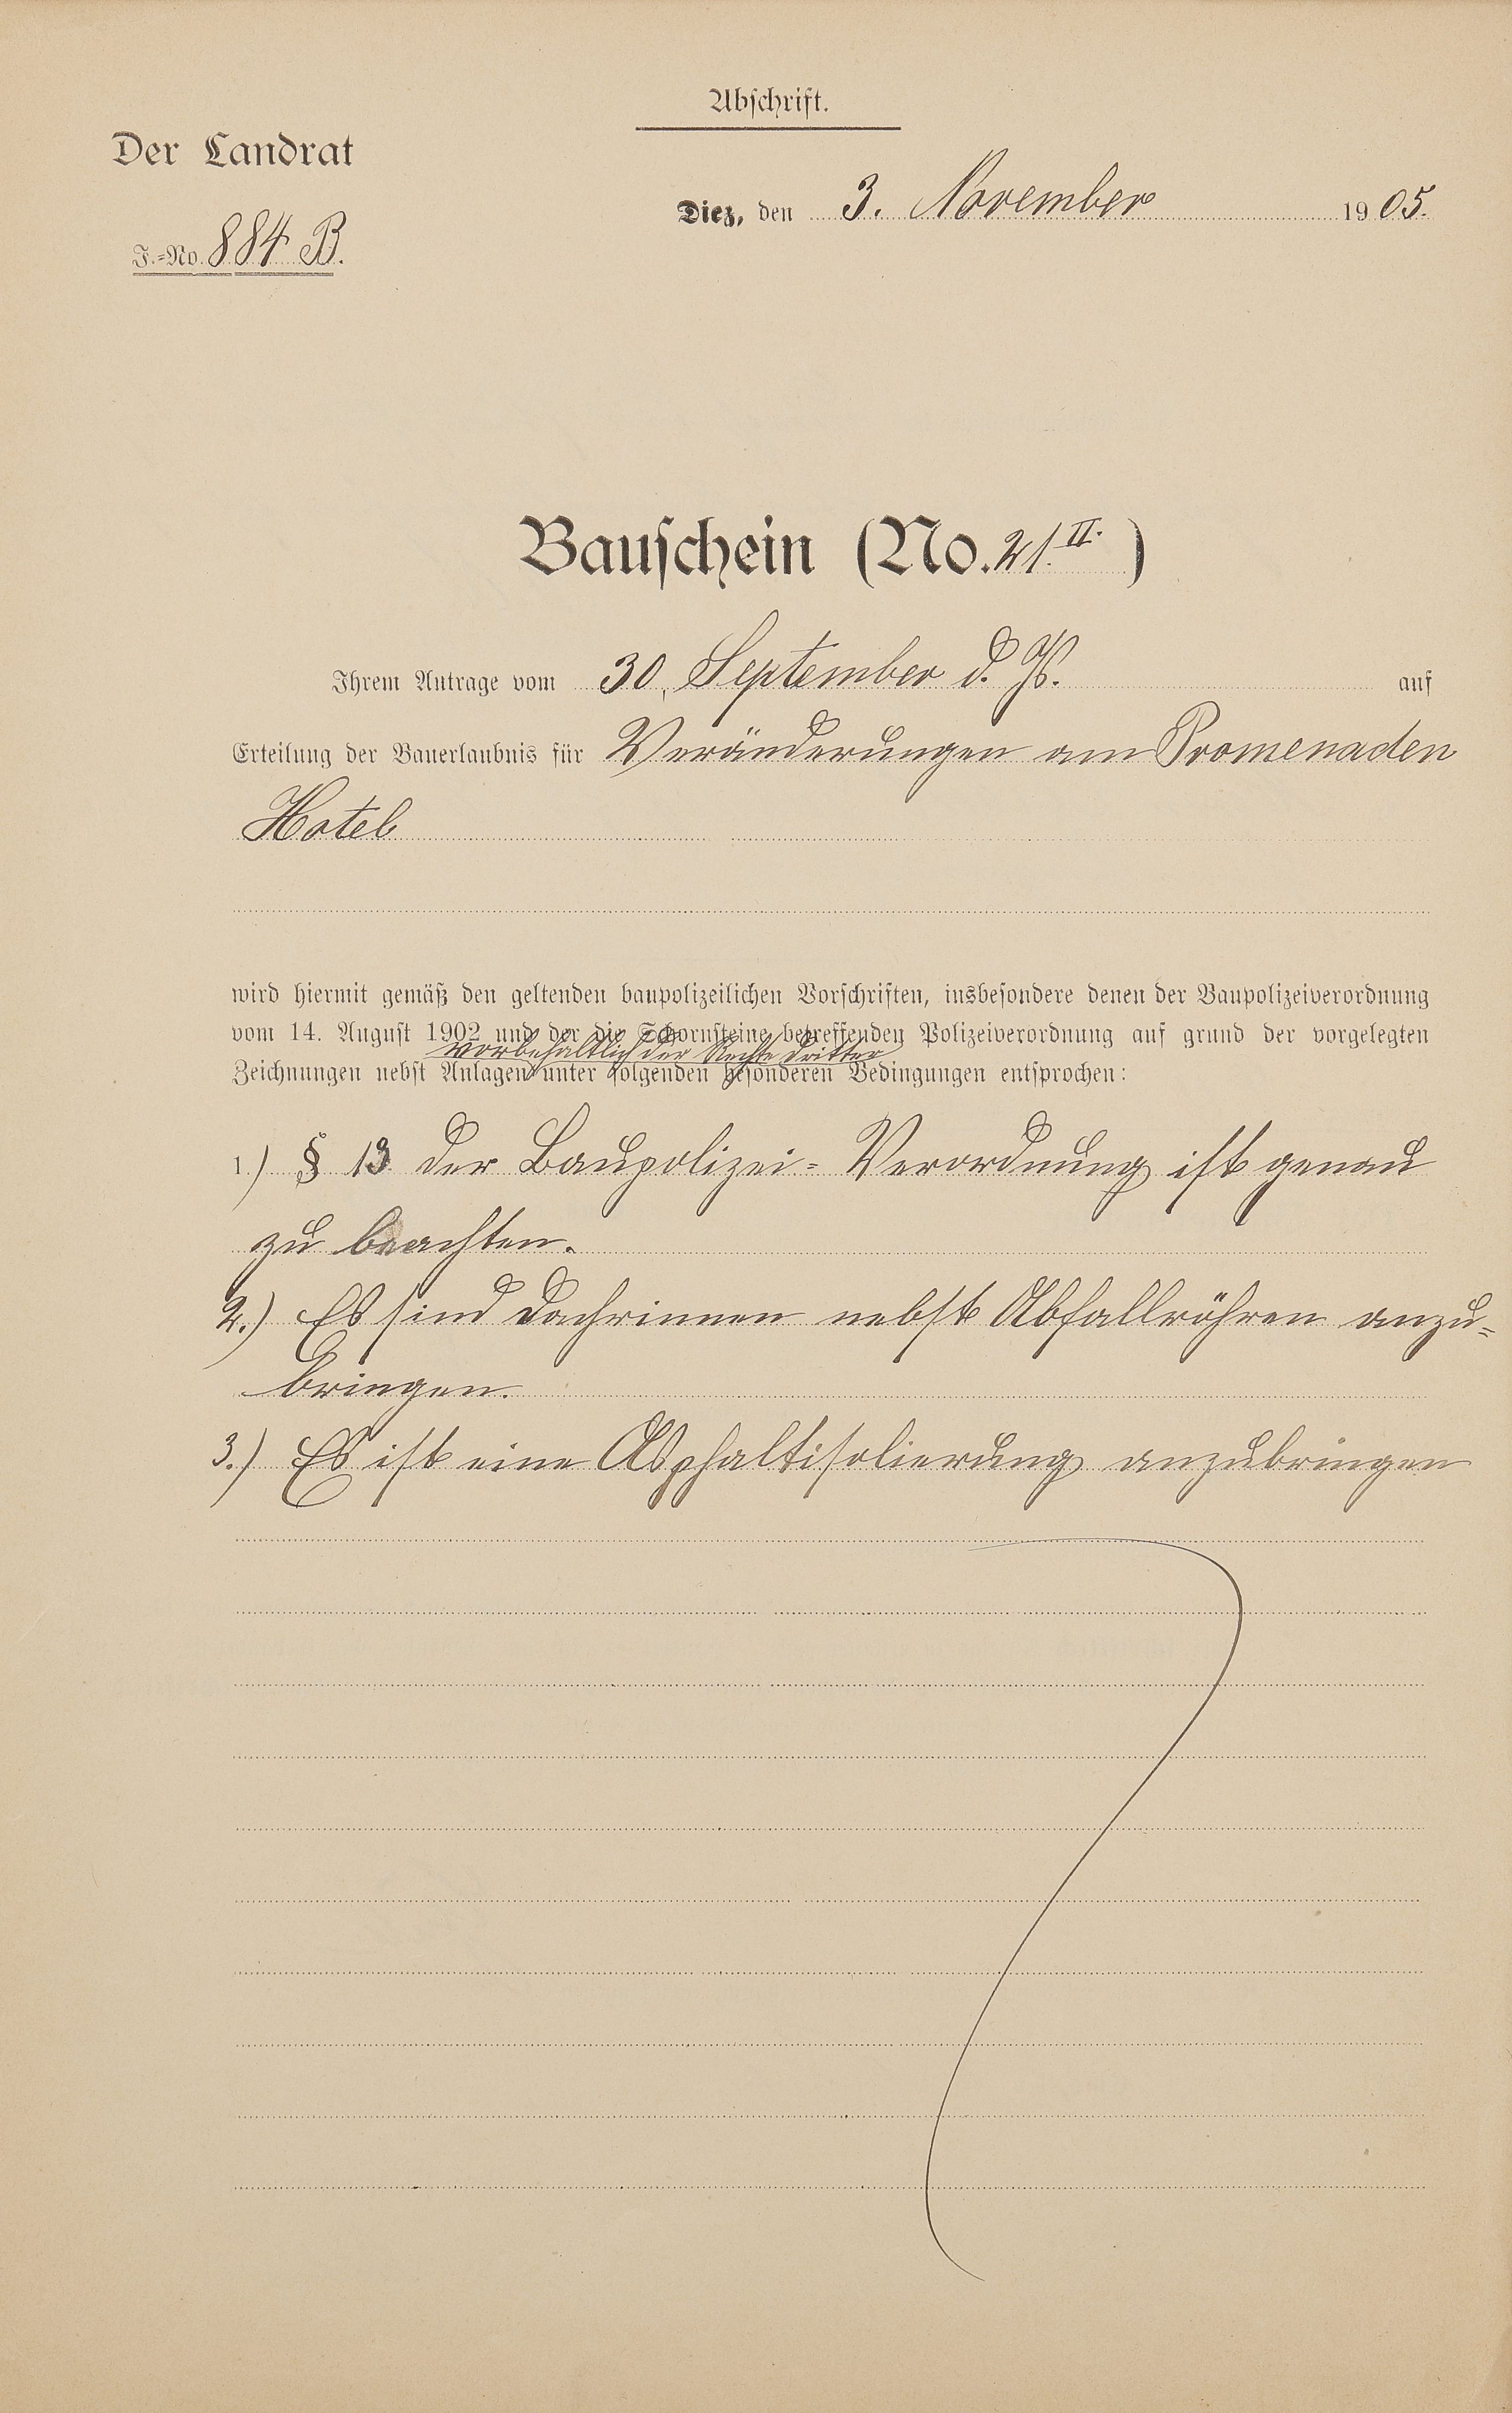 Abschrift.
Der Landrat
Diez, den 3. November 1905.
J.-No. 884 B.
Bauschein (No. 21.II.)
Ihrem Antrage vom 30. September d. Js. auf
Erteilung der Bauerlaubnis für Veränderungen am Promenaden
Hotel
wird hiermit gemäß den geltenden baupolizeilichen Vorschriften, insbesondere denen der Baupolizeiverordnung
vom 14. August 1902 und der die Schornsteine betreffenden Polizeiverordnung auf grund der vorgelegten
vorbehaltlich der Rechte Dritter
Zeichnungen nebst Anlagen unter folgenden besonderen Bedingungen entsprochen:
1.) § 13 der Baupolizei-Verordnung ist genau
zu beachten.
2.) Es sind Dachrinnen nebst Abfallröhren anzu-
bringen.
3.) Es ist eine Asphaltisolierung anzubringen